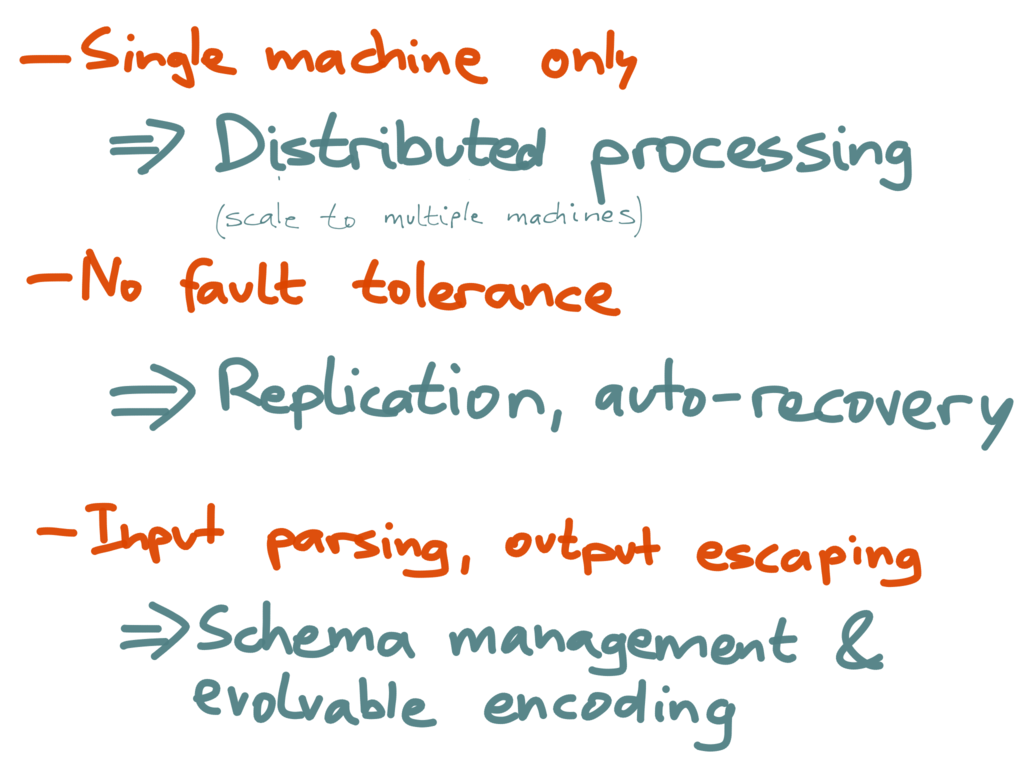 – Single machine only
⇒ Distributed processing
(scale to multiple machines)
– No fault tolerance
⇒ Replication, auto-recovery
– Input parsing, output escaping
⇒ Schema management &
evolvable encoding